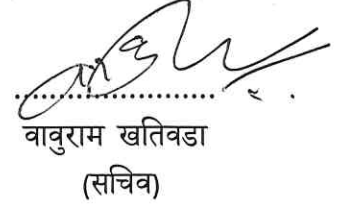 वावुराम खतिवडा
(सचिव)